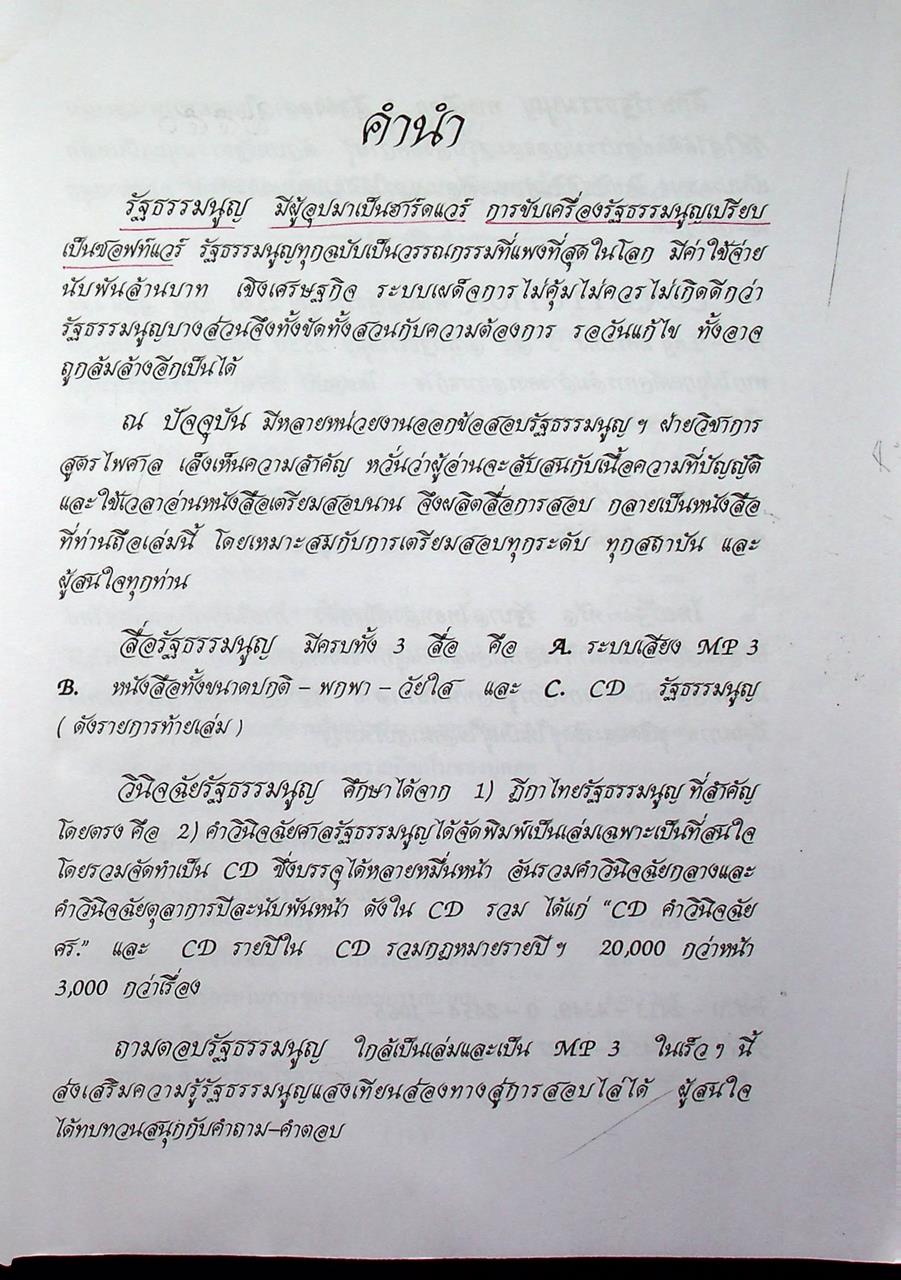 คำนำ
รัฐธรรมนูญ มีผู้อุปมาเป็นฮาร์ดแวร์ การขับเครื่องรัฐธรรมนูญเปรียบ
เป็นซอฟท์แวร์ รัฐธรรมนูญทุกฉบับเป็นวรรณกรรมที่แพงที่สุดในโลก มีค่าใช้จ่าย
นับพันล้านบาท เชิงเศรษฐกิจ ระบบเผด็จการไม่คุ้มไม่ควรไม่เกิดดีกว่า
รัฐธรรมนูญบางส่วนจึงทั้งขัดทั้งสวนกับความต้องการ รอวันแก้ไข ทั้งอาจ
ถูกล้มล้างอีกเป็นได้
ณ ปัจจุบัน มีหลายหน่วยงานออกข้อสอบรัฐธรรมนูญ ฯ ฝ่ายวิชาการ
สูตรไพศาล เล็งเห็นความสำคัญ หวั่นว่าผู้อ่านจะสับสนกับเนื้อความที่บัญญัติ
และใช้เวลาอ่านหนังสือเตรียมสอบนาน จึงผลิตสื่อการสอบ กลายเป็นหนังสือ
ที่ท่านถือเล่มนี้ โดยเหมาะสมกับการเตรียมสอบทุกระดับ ทุกสถาบัน และ
ผู้สนใจทุกท่าน
สื่อรัฐธรรมนูญ มีครบทั้ง 3 สื่อ คือ A. ระบบเสียง MP 3
B. หนังสือทั้งขนาดปกติ – พกพา – วัยใส และ C. CD รัฐธรรมนูญ
( ดังรายการท้ายเล่ม )
วินิจฉัยรัฐธรรมนูญ ศึกษาได้จาก 1) ฎีกาไทยรัฐธรรมนูญ ที่สำคัญ
โดยตรง คือ 2) คำวินิจฉัยศาลรัฐธรรมนูญได้จัดพิมพ์เป็นเล่มเฉพาะเป็นที่สนใจ
โดยรวมจัดทำเป็น CD ซึ่งบรรจุได้หลายหมื่นหน้า อันรวมคำวินิจฉัยกลางและ
คำวินิจฉัยตุลาการปีละนับพันหน้า ดังใน CD รวม ได้แก่ “CD คำวินิจฉัย
ศร.” และ CD รายปีใน CD รวมกฎหมายรายปี ฯ 20,000 กว่าหน้า
3,000 กว่าเรื่อง
ถามตอบรัฐธรรมนูญ ใกล้เป็นเล่มและเป็น MP 3 ในเร็ว ๆ นี้
ส่งเสริมความรู้รัฐธรรมนูญแสงเทียนส่องทางสู่การสอบไล่ได้ ผู้สนใจ
ได้ทบทวนสนุกกับคำถาม–คำตอบ